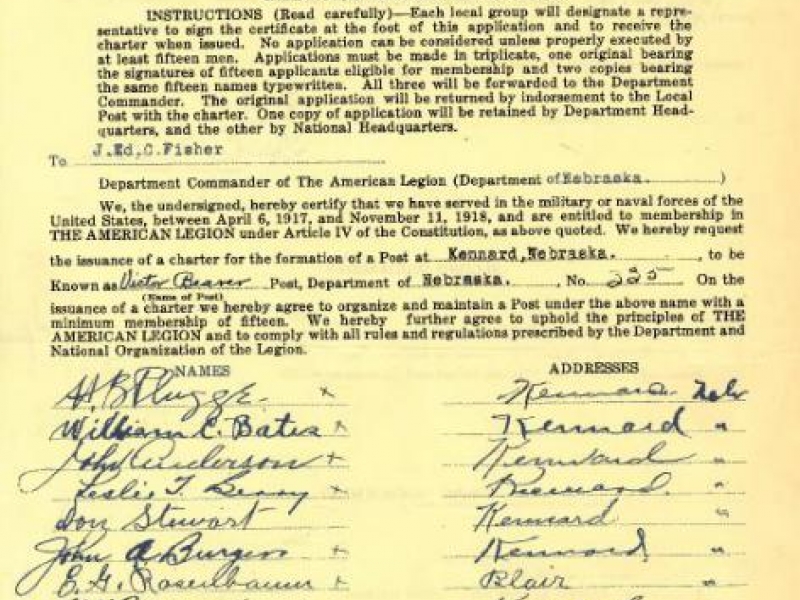 INSTRUCTIONS (Read carefully)—Each local group will designate a repre-
sentative to sign the certificate at the foot of this application and to receive the
charter when issued. No application can be considered unless properly executed by
at least fifteen men. Applications must be made in triplicate, one original bearing
the signatures of fifteen applicants eligible for membership and two copies bearing
the same fifteen names typewritten. All three will be forwarded to the Department
Commander. The original application will be returned by indorsement to the Local
Post with the charter. One copy of application will be retained by Department Head-
quarters, and the other by National Headquarters.
To J.Ed.C.Fisher
Department Commander of The American Legion (Department of Nebraska. )
We, the undersigned, hereby certify that we have served in the military or naval forces of the
United States, between April 6, 1917, and November 11, 1918, and are entitled to membership in
THE AMERICAN LEGION under Article IV of the Constitution, as above quoted. We hereby request
the issuance of a charter for the formation of a Post at Kennard, Nebraska. , to be
Known as Victor Beaver Post, Department of Nebraska. , No. 225 On the
(Name of Post)
issuance of a charter we hereby agree to organize and maintain a Post under the above name with a
minimum membership of fifteen. We hereby further agree to uphold the principles of THE
AMERICAN LEGION and to comply with all rules and regulations prescribed by the Department and
National Organization of the Legion.
NAMES ADDRESSES
H. B. Plugge x Kennard Nebr
William C. Bates x Kennard "
John Anderson + Kennard "
Leslie T. Berry x Kennard. "
Don Stewart Kennard "
John A Burgess x Kennard "
E. G. Rosenbaum + Blair "